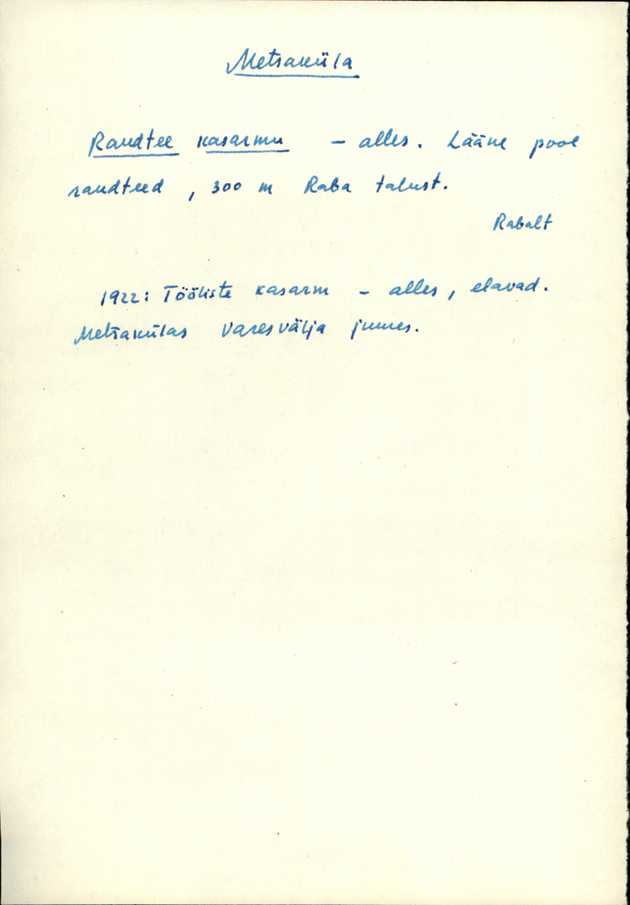 Metsaküla
Raudtee kasarmu – alles. Lääne pool
raudteed, 300 m Raba talust.
Rabalt
1922: Tööliste kasarm – alles, elavad.
Metsakülas Varesvälja juures.